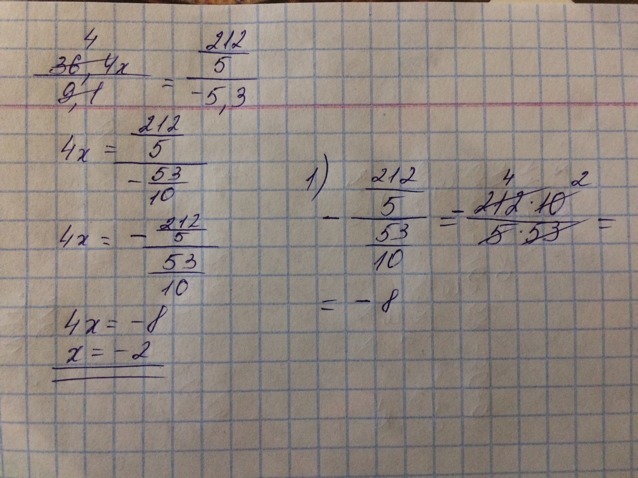 4
36,4x / 9,1 = (212/5) / (-5,3)
4x = (212/5) / (-53/10)
4x = - (212/5) / (53/10)
4x = -8
x = -2
1) - (212/5) / (53/10) = - (212 · 10) / (5 · 53) =
4 2
= -8